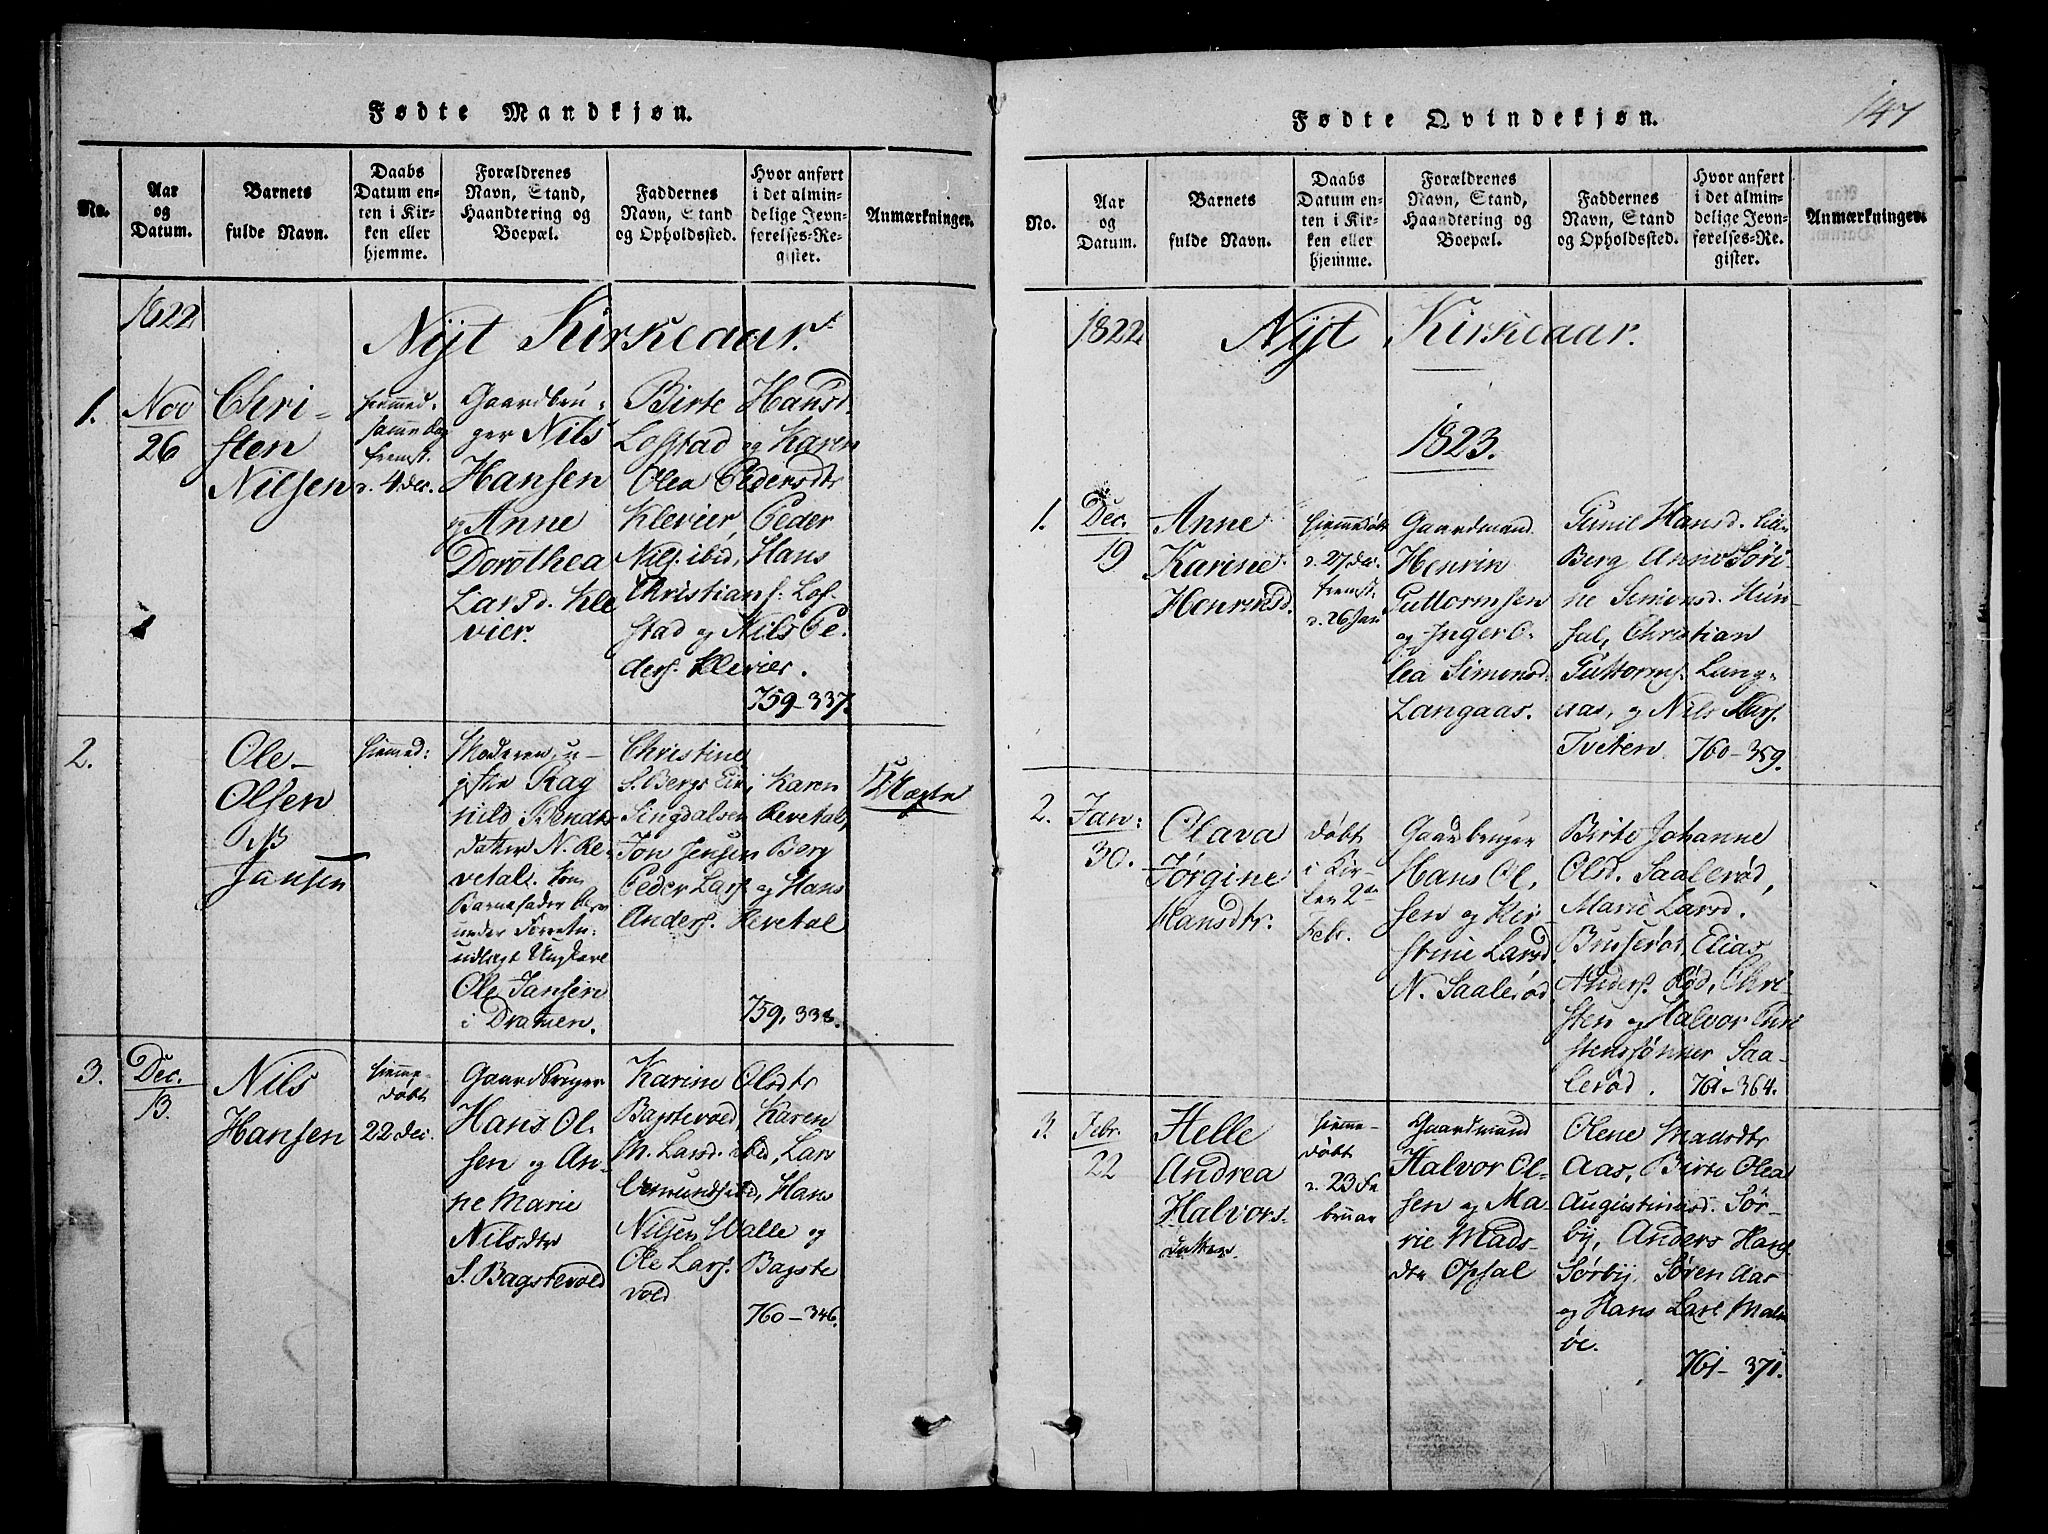 Fødte Mandkjøn.
No.
Aar
og
Datum.
Barnets
fulde Navn.
Daabs
Datum en-
ten i Kir-
ken eller
hjemme.
Forældrenes
Navn, Stand,
Haandtering og
Boepæl.
Faddernes
Navn, Stand
og Opholdssted.
Hvor anført
i det almin-
delige Jevn-
førelses-Re-
gister.
Anmærkninger.
1822
Nyt Kirkeaar.
1.
Nov
26
Chri-
sten
Nilsen
hiemmed.
samme dag
fremst.
d. 4 dec.
Gaardbru-
ger Nils
Hansen
og Anne
Dorothea
Larsd. Kle
vier.
Birte Hansd.
Lofstad og Karen
Olea Pedersdtr
Klevier, Peder
Nils. ibid, Hans
Christians. Lof-
stad og Nils Pe-
ders. Klevier.
759-337.
2.
Ole
Olsen
Jansen
hiemmed:
Moderen u-
gifte Rag
hild Bendts
datter N. Re-
vetal. Som
Barnefader blev
under Forretn:
udlagt Ungkarl
Ole Jansen
i Dramen.
Christine
S. Berg, Karen
Singdalsen Revetal,
Jon Jensen Berg
Peder Lars. og Hans
Anders. Revetal
759, 338.
Uægte
3.
Dec.
13.
Nils
Hansen
hiemme-
døbt
22 dec.
Gaardbruger
Hans Ol-
sen og An-
ne Marie
Nilsdtr
S. Bagstevold
Karine Olsdtr
Bagstevold, Karen
M. Larsd. ibid, Lars
Amundsen ibid, Hans
Nilsen Walle og
Ole Lars. Bagste
vold
760-346.
Fødte Qvindekjøn.
147
No.
Aar
og
Datum.
Barnets
fulde Navn.
Daabs
Datum en-
ten i Kir-
ken eller
hjemme.
Forældrenes
Navn, Stand,
Haandtering og
Boepæl.
Faddernes
Navn, Stand
og Opholdssted.
Hvor anført
i det almin-
delige Jevn-
førelses-Re-
gister.
Anmærkninger.
1822
Nyt Kirkeaar.
1823.
1.
Dec.
19
Anne
Karine
Henrinsd.
hiemmedøbt
d. 27 dec.
fremst.
d. 26 Jan
Gaardmand
Henrin
Guttormsen
og Inger O-
lea Simonsd.
Langaas.
Gunil Hansd. Lille
Berg, Anne Søri
ne Simonsd. Hun-
sal, Christian
Guttorms. Lang-
aas, og Nils Hans.
Tveten. 760-359.
2.
Jan:
30.
Olava
Jørgine
Hansdtr.
døbt
i Kir-
ken 2den
Febr.
Gaardbruger
Hans Ol-
sen og Kir-
stine Larsd.
N. Saalerød
Birte Johanne
Olsd. Saalerød,
Marie Larsd.
Busserød, Elias
Anders. Rød, Chri-
sten og Halvor Chri
stensønner Saa-
lerød. 761-364.
3.
Febr.
22
Helle
Andrea
Halvors-
datter.
hiemme-
døbt
d. 23 Fe
bruar
Gaardmand
Halvor Ol-
sen og Ma-
rie Mads-
dtr Opsal
Olene Madsdtr
Aas, Birte Olea
Augustinusd. Sør-
by, Anders Hans.
Sørby, Søren Aas
og Hans Lars. Malm
øe.
761-371.